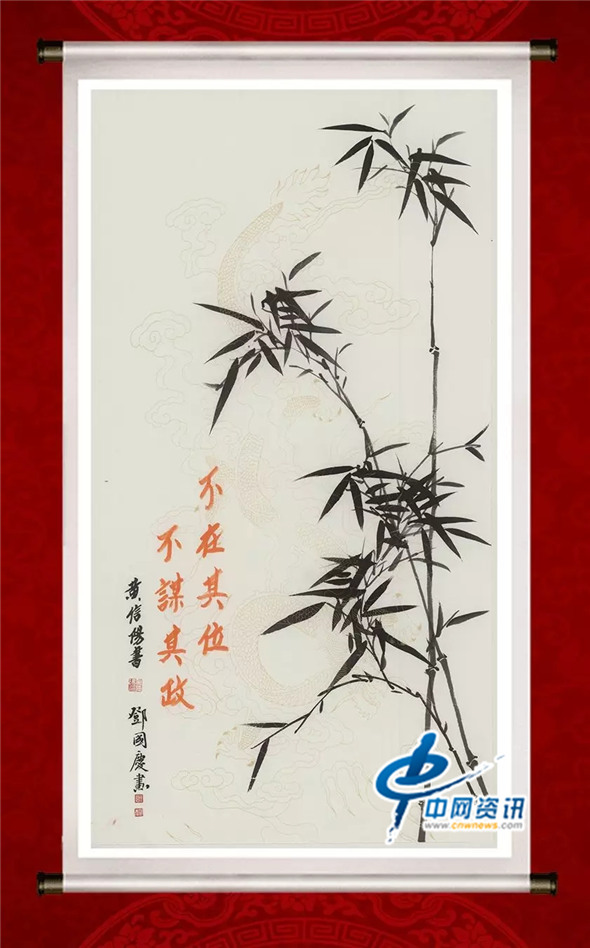 不在其位
不謀其政
黄信陽書
鄧國慶畫
中网资讯
www.cnwnews.com